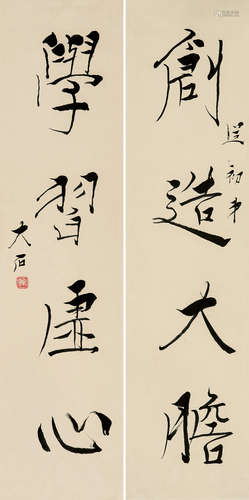 創造大膽
初弟
學習虛心
大石